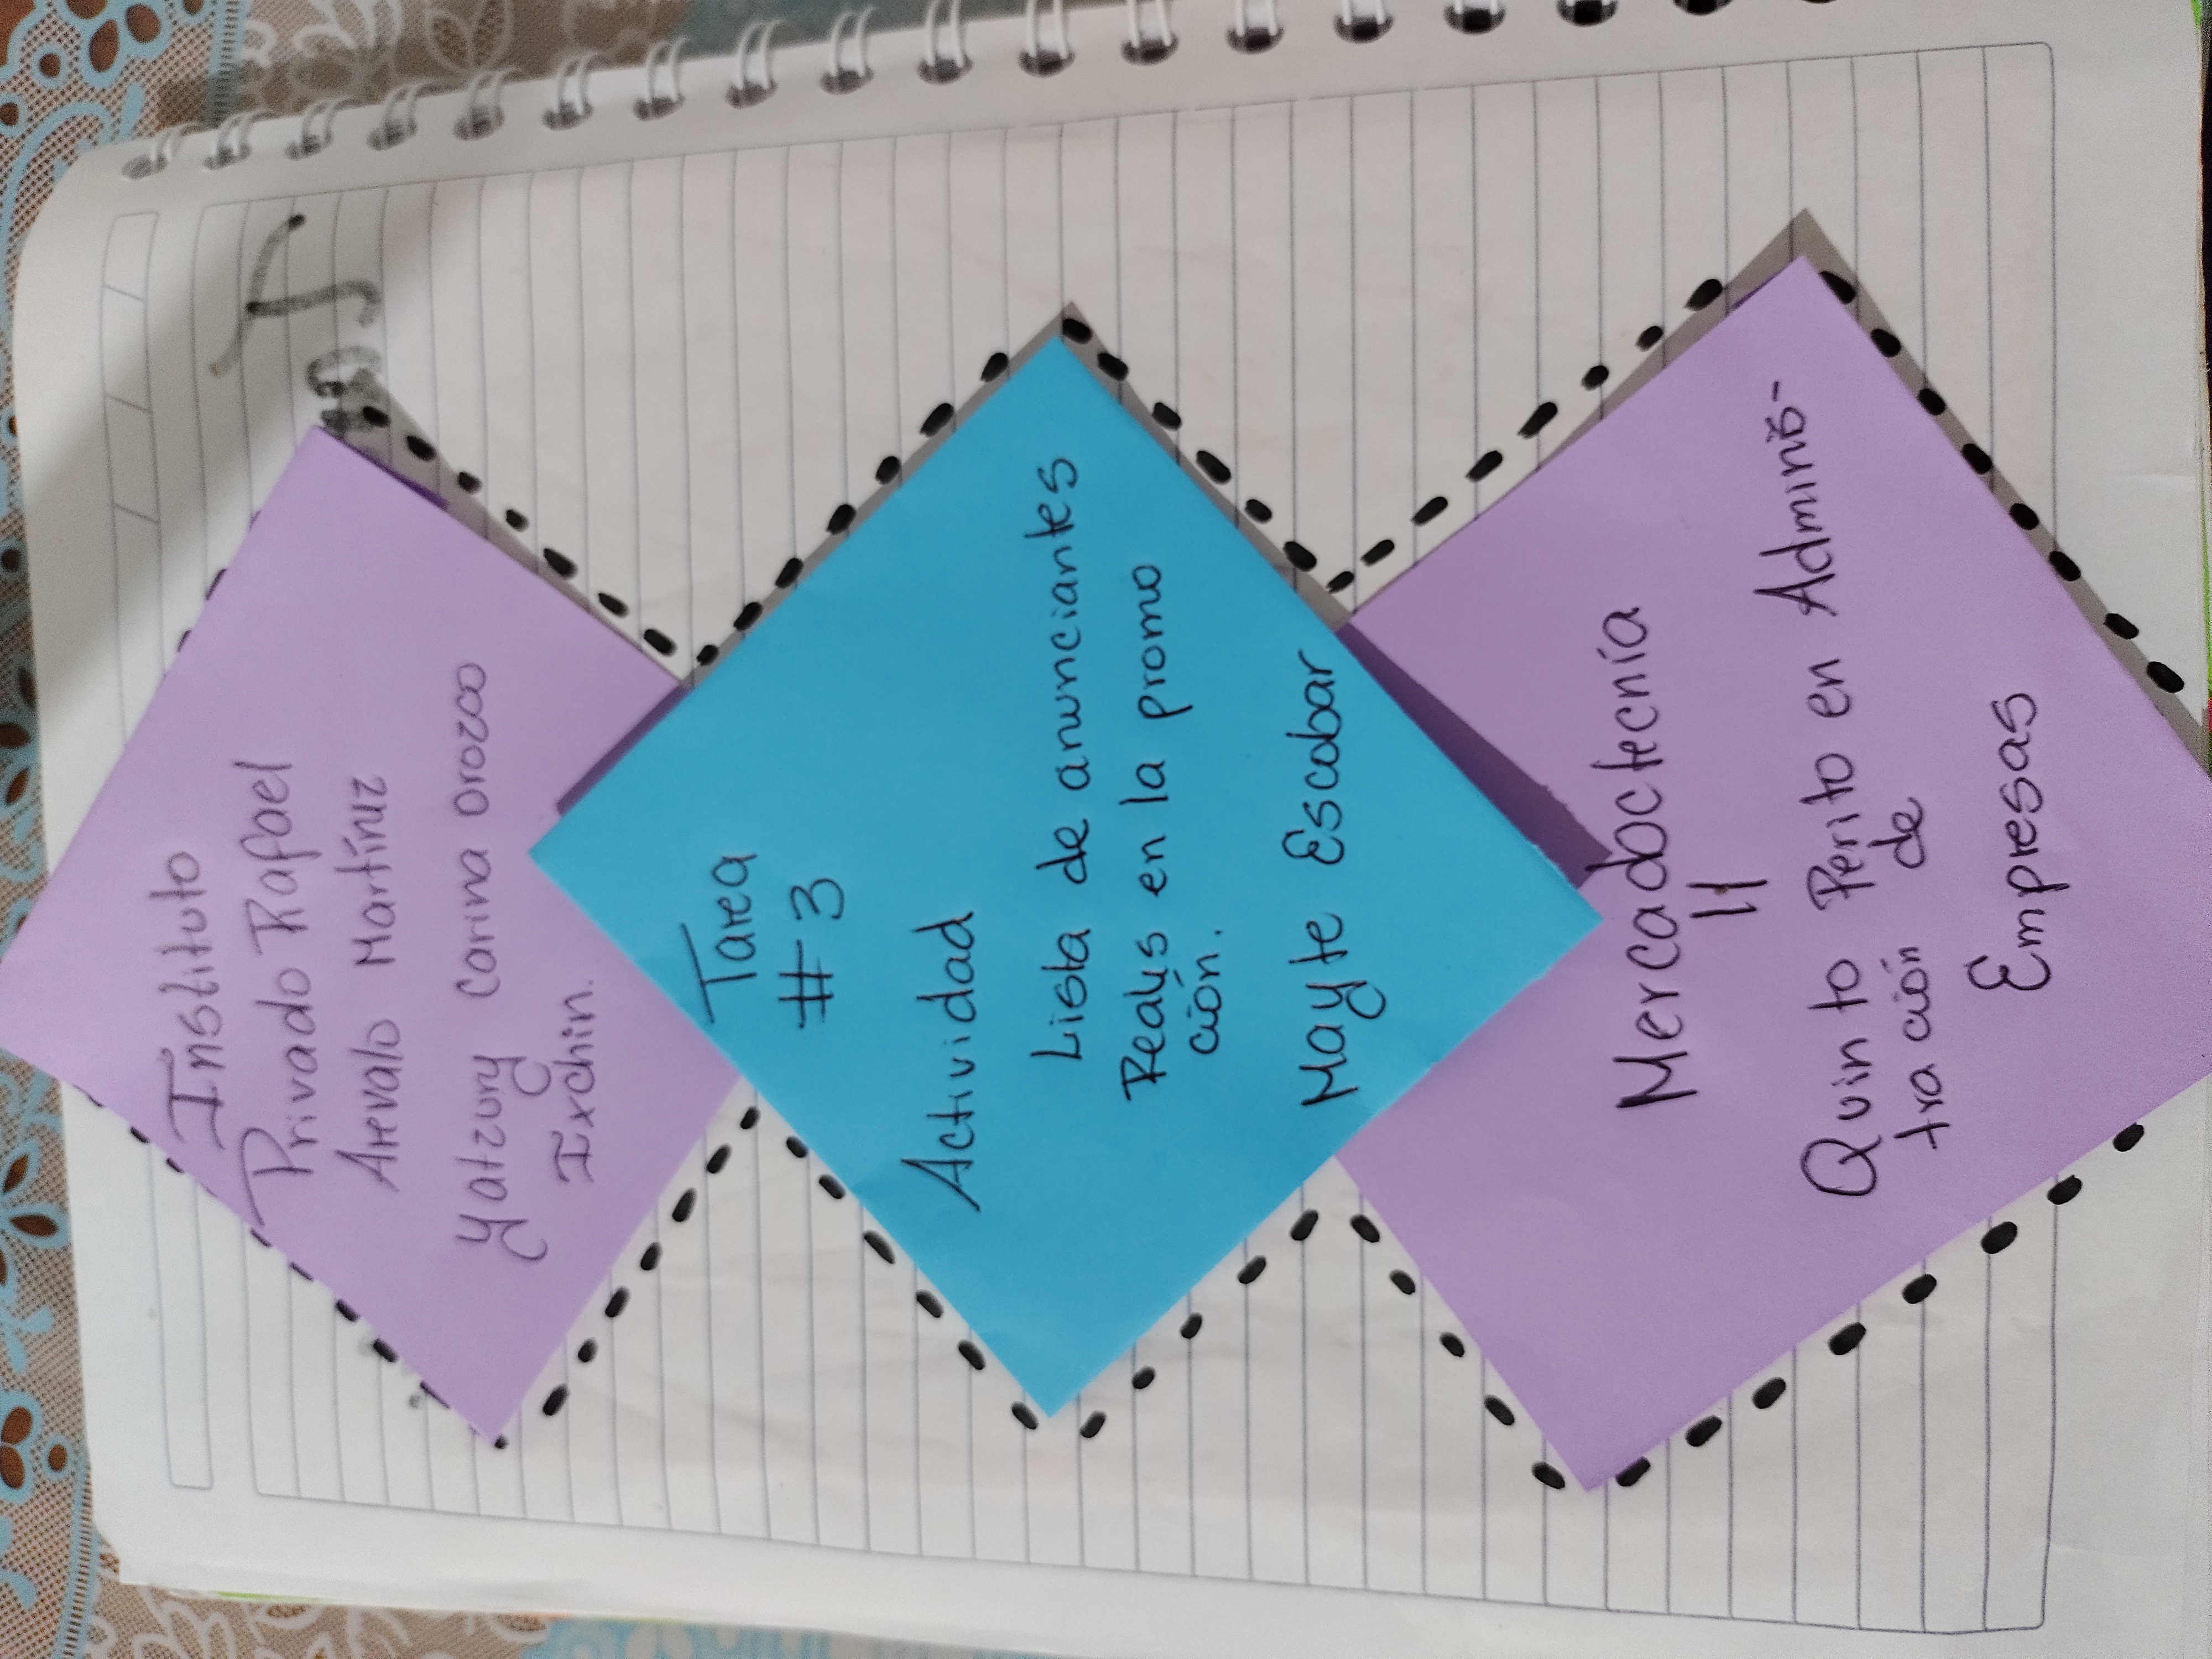 Instituto
Privado Rafael
Arevalo Martínez
Yatzury Carina Orozco
Ixchin.
Tarea
#3
Actividad
Lista de anunciantes
Realys en la promo
ción.
Mayte Escobar
Mercadoctecnía
II
Quinto Perito en Adminis-
tración de
Empresas